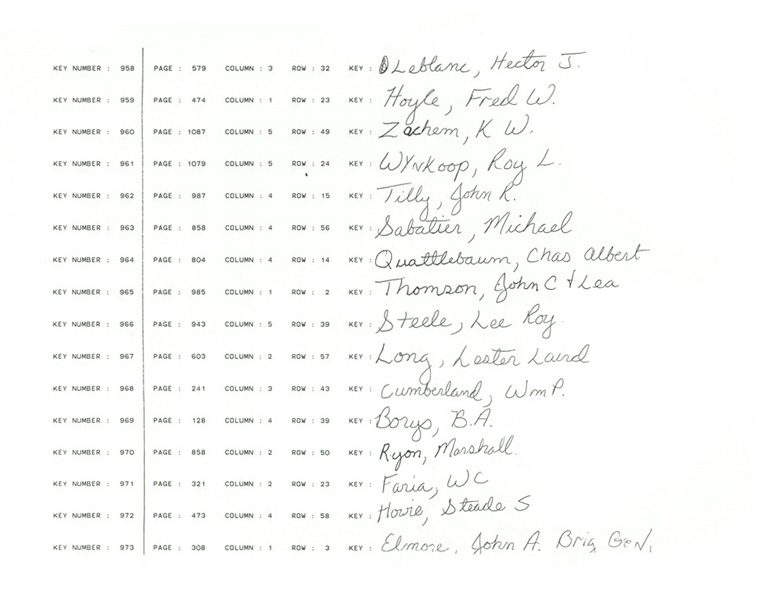 KEY NUMBER : 958 PAGE : 579 COLUMN : 3 ROW : 32 KEY : Leblanc, Hector J.
KEY NUMBER : 959 PAGE : 474 COLUMN : 1 ROW : 23 KEY : Hoyle, Fred W.
KEY NUMBER : 960 PAGE : 1087 COLUMN : 5 ROW : 49 KEY : Zachem, K W.
KEY NUMBER : 961 PAGE : 1079 COLUMN : 5 ROW : 24 KEY : Wynkoop, Roy L.
KEY NUMBER : 962 PAGE : 987 COLUMN : 4 ROW : 15 KEY : Tilly, John R.
KEY NUMBER : 963 PAGE : 858 COLUMN : 4 ROW : 56 KEY : Sabatier, Michael
KEY NUMBER : 964 PAGE : 804 COLUMN : 4 ROW : 14 KEY : Quattlebaum, Chas Albert
KEY NUMBER : 965 PAGE : 985 COLUMN : 1 ROW : 2 KEY : Thomson, John C + Lea
KEY NUMBER : 966 PAGE : 943 COLUMN : 5 ROW : 39 KEY : Steele, Lee Roy
KEY NUMBER : 967 PAGE : 603 COLUMN : 2 ROW : 57 KEY : Long, Lester Laird
KEY NUMBER : 968 PAGE : 241 COLUMN : 3 ROW : 43 KEY : Cumberland, Wm P.
KEY NUMBER : 969 PAGE : 128 COLUMN : 4 ROW : 39 KEY : Borys, B.A.
KEY NUMBER : 970 PAGE : 858 COLUMN : 2 ROW : 50 KEY : Ryon, Marshall.
KEY NUMBER : 971 PAGE : 321 COLUMN : 2 ROW : 23 KEY : Faria, WC
KEY NUMBER : 972 PAGE : 473 COLUMN : 4 ROW : 58 KEY : Howie, Steade S
KEY NUMBER : 973 PAGE : 308 COLUMN : 1 ROW : 3 KEY : Elmore, John A. Brig Gen.